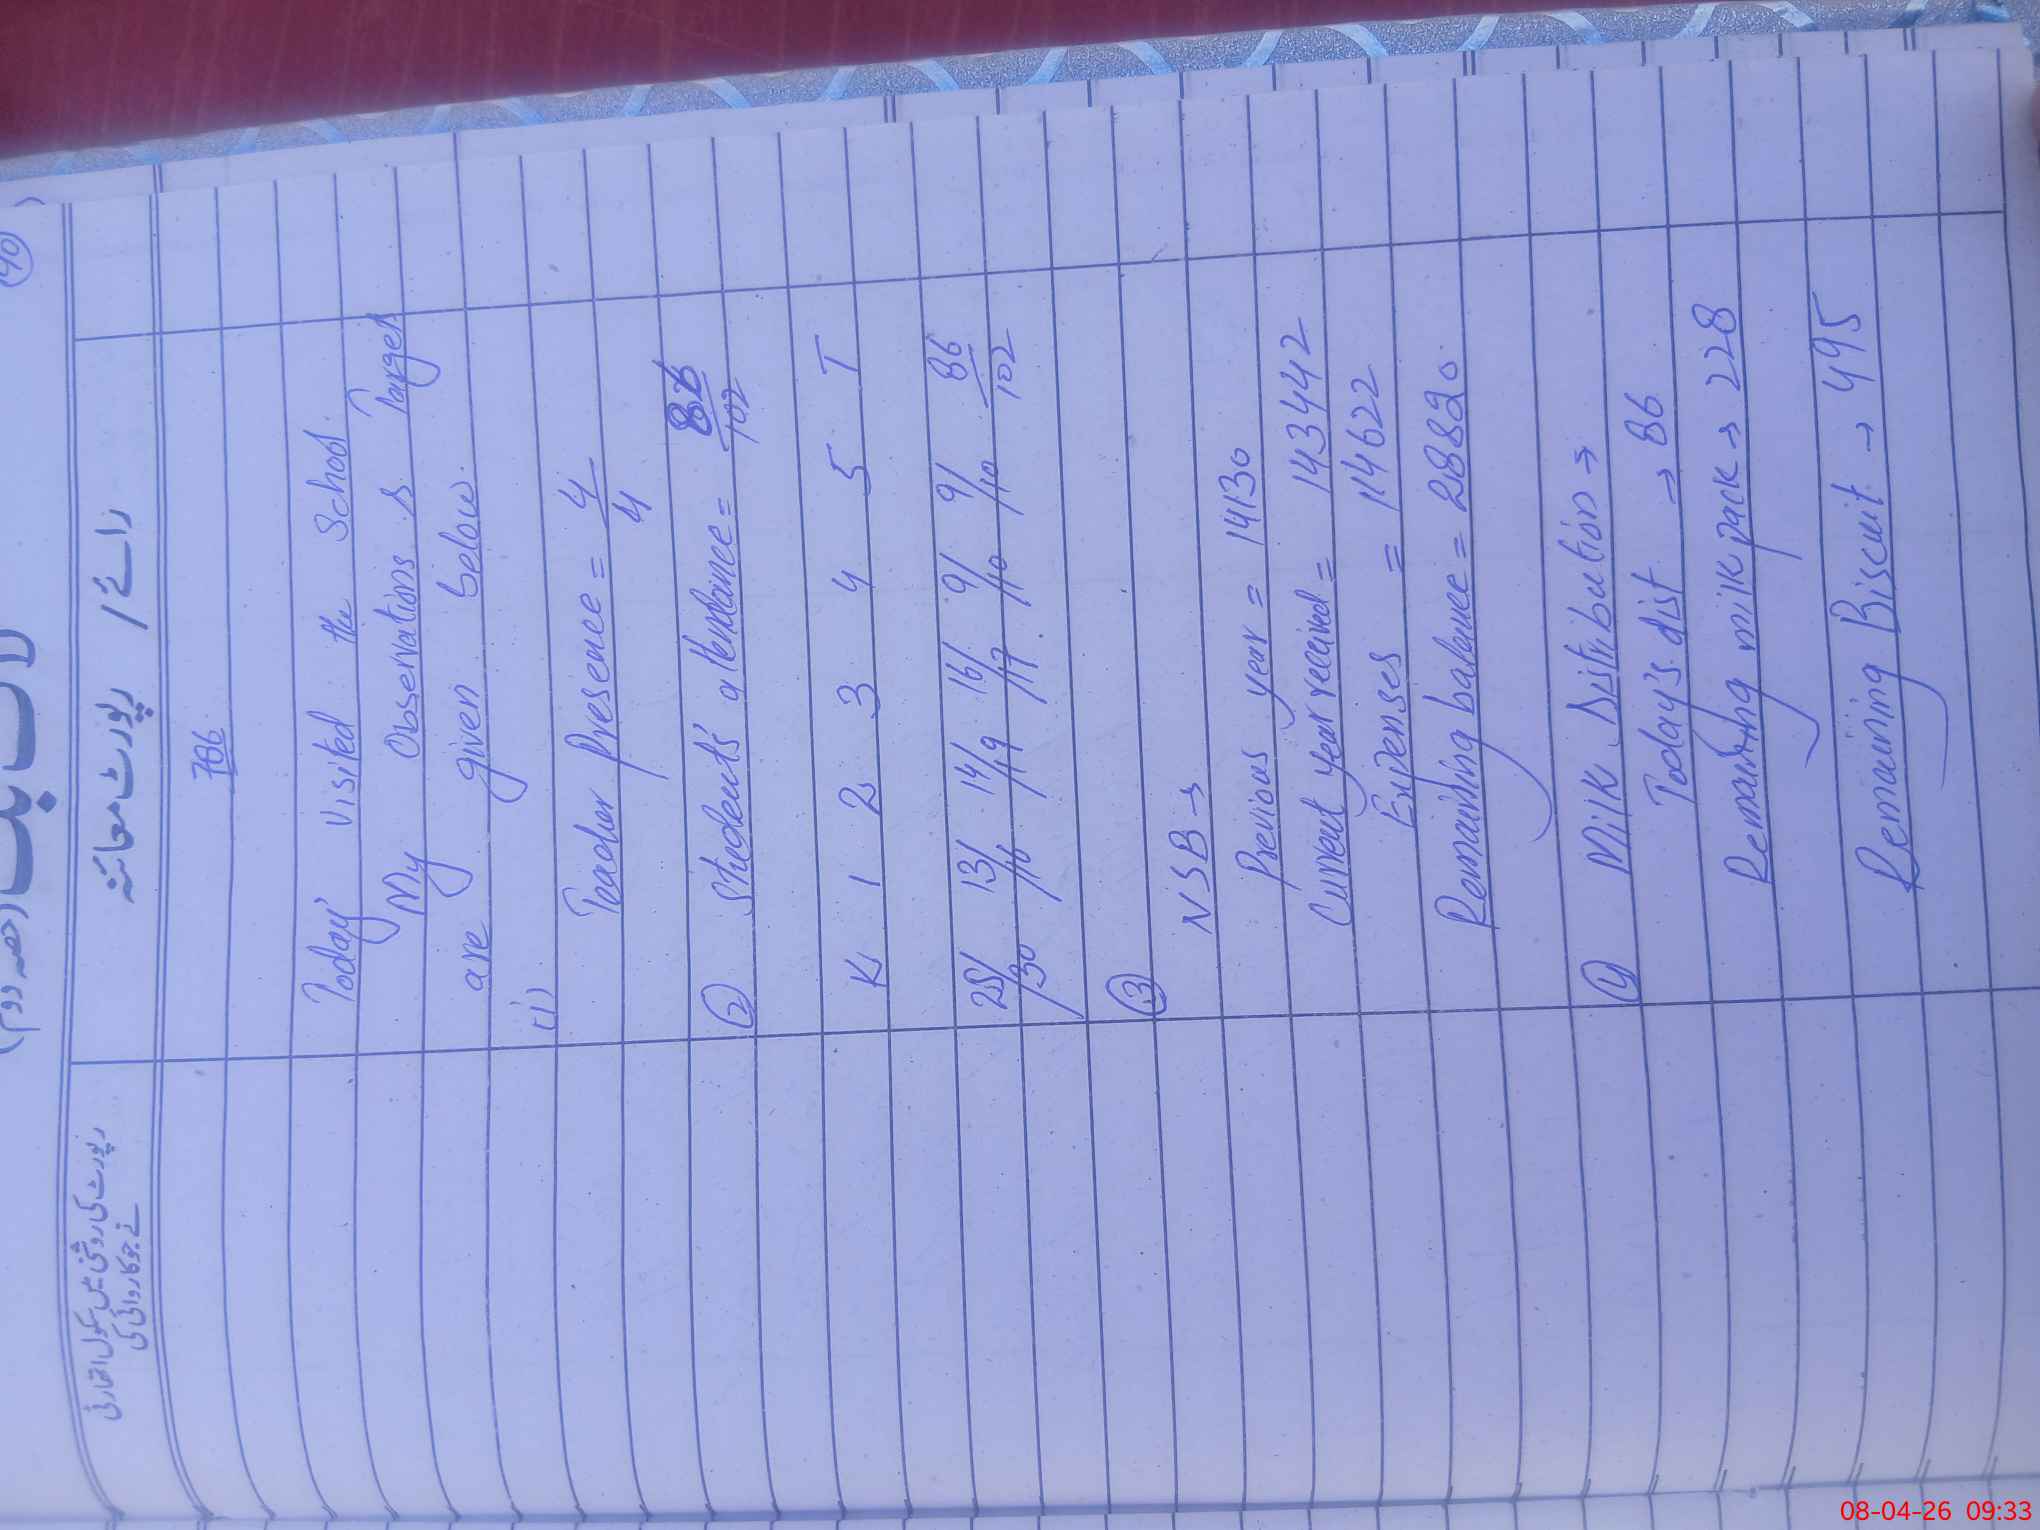 40
لاگ بک (حصہ دوم)
رائے / رپورٹ معائنہ
رپورٹ کی روشنی میں سکول اتھارٹی
نے جو کاروائی کی
786
Today visited the School.
My Observations & Target
are given below.
(1) Teacher Presence = 4/4
(2) Student's attendance = 86/102
K 1 2 3 4 5 T
25/30 13/16 14/19 16/17 9/10 9/10 86/102
(3) NSB →
Previous year = 14130
Current year received = 143442
Expenses = 114622
Remaining balance = 28820.
(4) Milk Distribution →
Today's dist → 86
Remaining milk pack → 228
Remaining Biscuit → 495
08-04-26 09:33